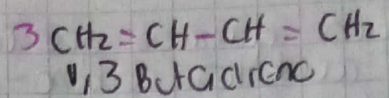 3 CH2 = CH - CH = CH2
1,3 Butadieno